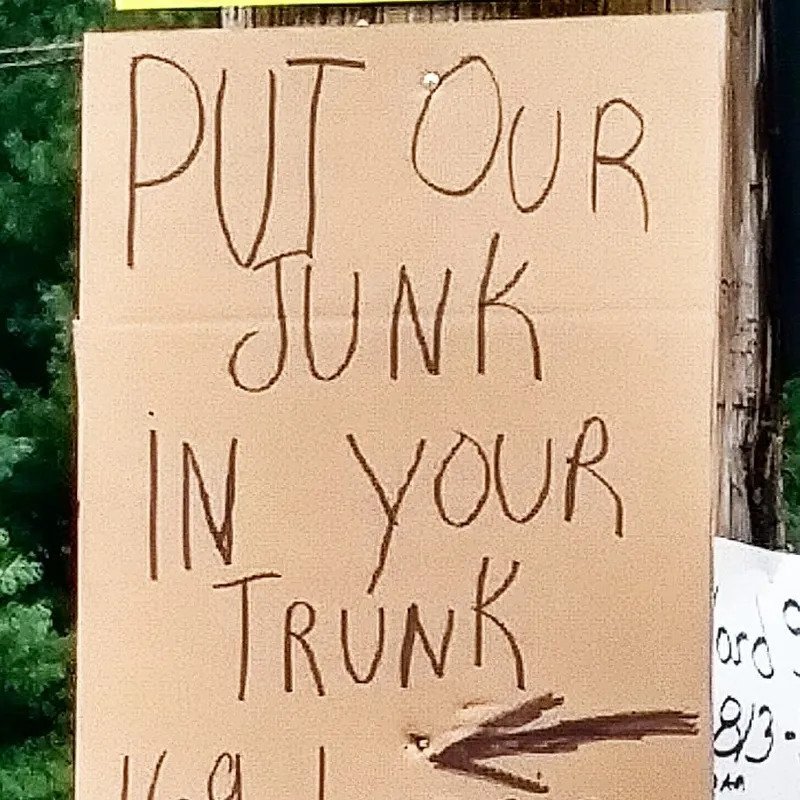 PUT OUR
JUNK
IN YOUR
TRUNK
8/3-